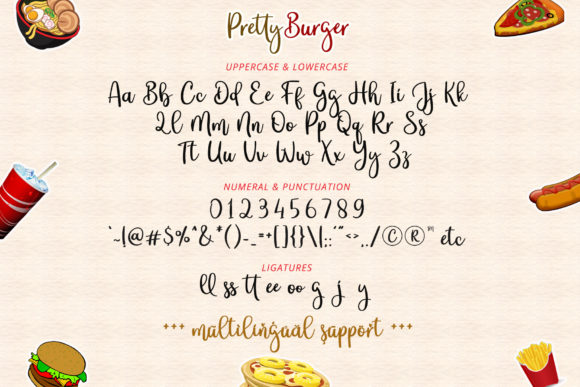 Pretty Burger
UPPERCASE & LOWERCASE
Aa Bb Cc Dd Ee Ff Gg Hh Ii Jj Kk
Ll Mm Nn Oo Pp Qq Rr Ss
Tt Uu Vv Ww Xx Yy Zz
NUMERAL & PUNCTUATION
0123456789
`~!@#$%^&*()-_=+[]{}\|;:'"<>,./©®™ etc
LIGATURES
ll ss tt ee oo g j y
+++ maltilingaal şapport +++